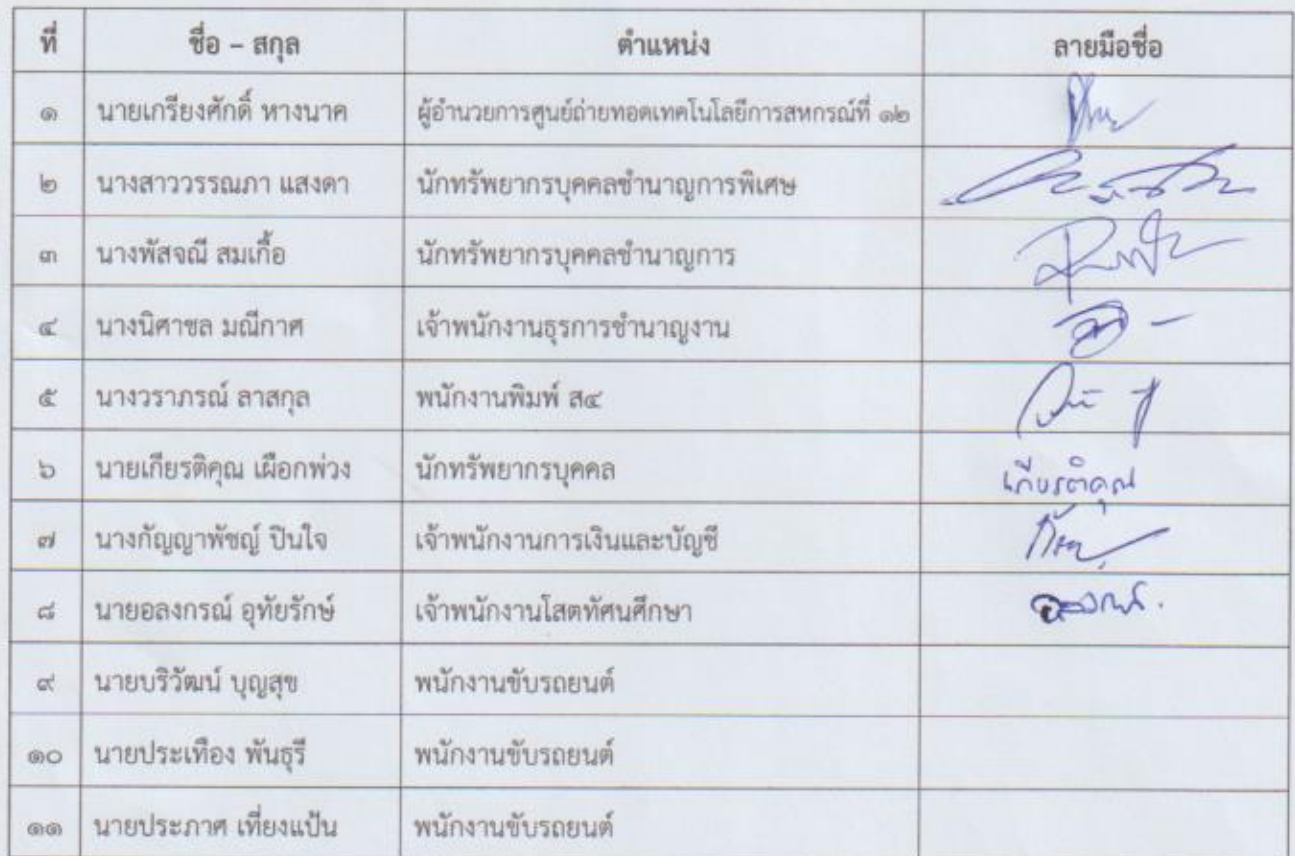 ที่ ชื่อ – สกุล ตำแหน่ง ลายมือชื่อ
๑ นายเกรียงศักดิ์ หางนาค ผู้อำนวยการศูนย์ถ่ายทอดเทคโนโลยีการสหกรณ์ที่ ๑๒
๒ นางสาววรรณภา แสงดา นักทรัพยากรบุคคลชำนาญการพิเศษ
๓ นางพัสจณี สมเกื้อ นักทรัพยากรบุคคลชำนาญการ
๔ นางนิศาชล มณีกาศ เจ้าพนักงานธุรการชำนาญงาน
๕ นางวราภรณ์ ลาสกุล พนักงานพิมพ์ ส๔
๖ นายเกียรติคุณ เผือกพ่วง นักทรัพยากรบุคคล เกียรติคุณ
๗ นางกัญญาพัชญ์ ปินใจ เจ้าพนักงานการเงินและบัญชี
๘ นายอลงกรณ์ อุทัยรักษ์ เจ้าพนักงานโสตทัศนศึกษา
๙ นายบริวัฒน์ บุญสุข พนักงานขับรถยนต์
๑๐ นายประเทือง พันธุรี พนักงานขับรถยนต์
๑๑ นายประภาศ เที่ยงแป้น พนักงานขับรถยนต์